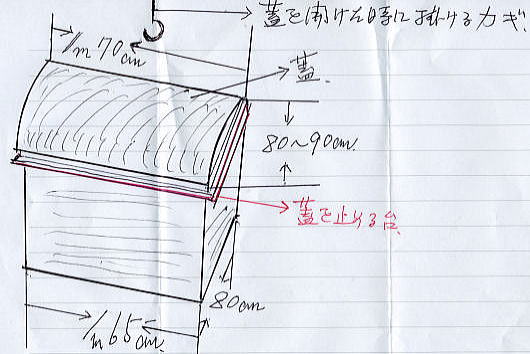 蓋を開けた時に掛けるカギ.
1m70cm
蓋.
80~90cm
蓋を止める台
80cm
1m65cm.